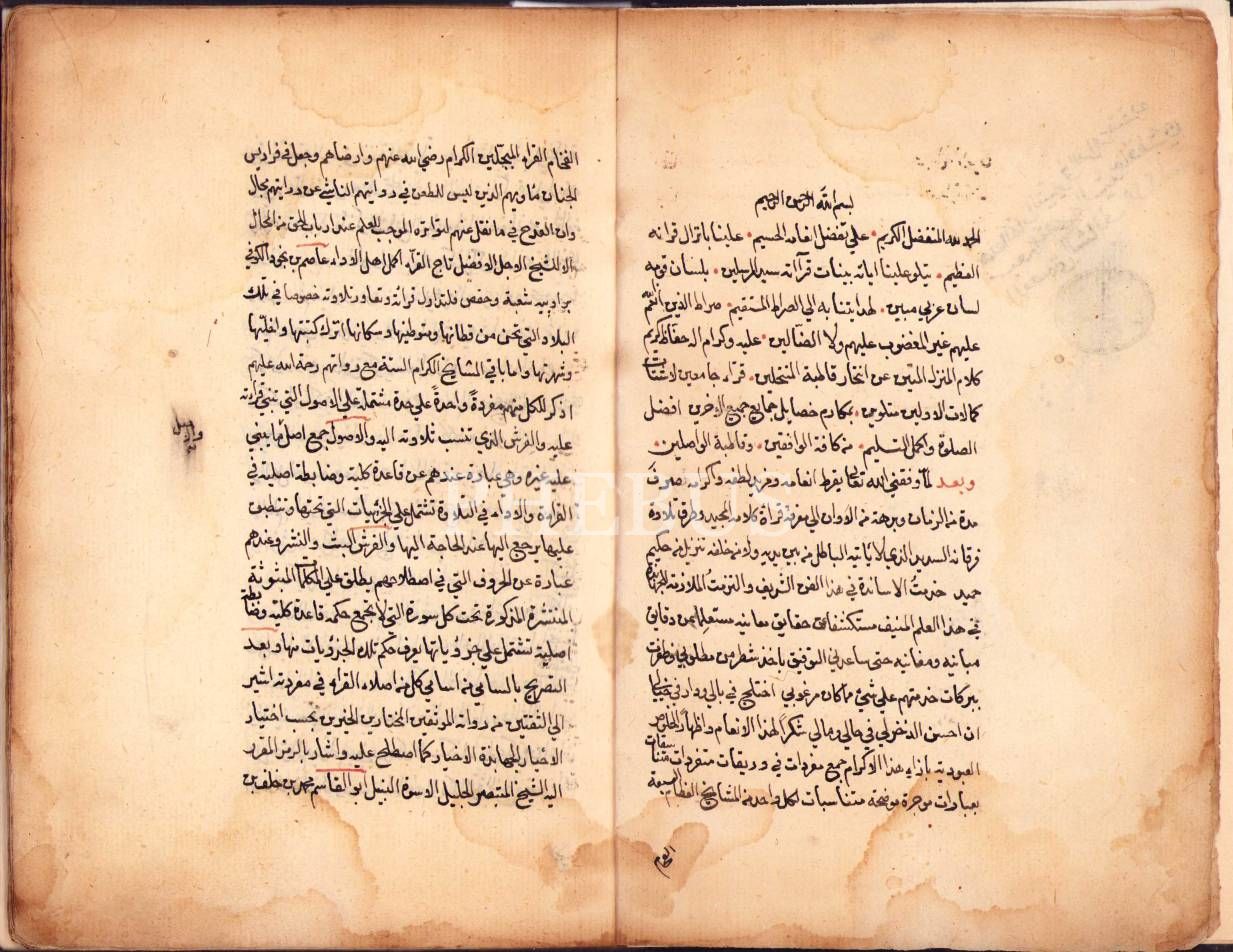 بسم الله الرحمن الرحيم
الحمد لله المتفضل الكريم علي بفضل انعامه الجسيم علينا بانزال قرانه
العظيم يتلو علينا اياته بينات قرآته سيد المرسلين بلسان قومه
لسان عربي مبين لهدايتنا به الي الصراط المستقيم صراط الذين انعم
عليهم غير المغضوب عليهم ولا الضالين عليه وكرام اله حفاظ كريم
كلام المنزل المتين عن انتحار قاطبة المنتحلين قراء جامعين لاشتات
كمالات الاولين متلوين بمكارم خصايل جمايع جميع الاخرين افضل
الصلوة واكمل التسليم من كافة الواقفين وقاطبة الواصلين
وبعد لما وفقني الله تعالى بفرط انعامه ومزيد لطفه واكرامه بصرف
مدة من الزمان وبرهة من الاوان الي معرفة قراة كلامه المجيد وطرق تلاوة
فرقانه السديد الذي لا ياتيه الباطل من بين يديه ولا من خلفه تنزيل من حكيم
حميد خدمت الاساتذة في هذا الفن الشريف والتزمت الملازمة
في هذا العلم المنيف مستكشفا عن حقايق معانيه مستعلما عن دقايق
مبانيه ومغانيه حتى ساعدني التوفيق باخذ شطر من مطلوبي وظفرت
ببركات خدمتهم على شئ مما كان مرغوبي اختلج في بالي ودار في خيالي
ان احسن الذخر لي في حالي ومالي شكرا لهذا الانعام واظهار الخلوص
العبودية بازاء هذا الاكرام جمع مفردات في وريقات متفردات متناسقات
بعبارات موجزة موضحة متناسبات لكل واحد من المشايخ العظام السبعة
الفخام
الفخام القراء المبجلين الكرام رضي الله عنهم وارضاهم وجعل في فراديس
الجنان مثاويهم الذين ليس للطعن في روايتهم الناشي عن درايتهم مجال
وان القدوح في ما نقل عنهم لتواتره الموجب للعلم عند ارباب الحق من المحال
الا للشيخ الاجل الافضل تاج القراء اكمل اهل الاداء عاصم بن نجود الكوفي
براوييه شعبة وحفص فلتداول قراته وتعاور تلاوته خصوصا في تلك
البلاد التي نحن من قطانها ومتوطنيها وسكانها اترك كتبتها ولغلبتها
وشهرتها واما باقي المشايخ الكرام الستة مع رواتهم رحمة الله عليهم
اذكر للكل منهم مفردة واحدة علي حدة مشتملة علي الاصول التي تبتني قراءته
عليه والفرش الذي تنسب تلاوته اليه والاصول جمع اصل ما يبني
عليه غيره وهي عبارة عندهم عن قاعدة كلية وضابطة اصلية في
القراءة والاداء في التلاوة تشتمل علي الجزئيات التي تحتها وتنطبق
عليها يرجع اليها عند الحاجة اليها والفرش البث والنشر وعندهم
عبارة عن الحروف التي في اصطلاحهم يطلق علي الكلمات المبثوثة
المنتشرة المذكورة تحت كل سورة التي لا يجمع حكمه قاعدة كلية وضابطة
اصلية تشتمل علي جزوياتها يعرف حكم تلك الجزويات منها وبعد
التصريح بالسامي من اسامي كل من اصلاء القراء في مفردته اشير
الي الثقتين من رواته الموثقين المختارين الخيرين بحسب اختيار
الاخيار الجهابذة الاحبار كما اصطلح عليه واشار بالرمز المقرر
اليه الشيخ المتبصر الجليل الاسوة النبيل ابو القاسم محمد بن خلف بن
PHEBUS